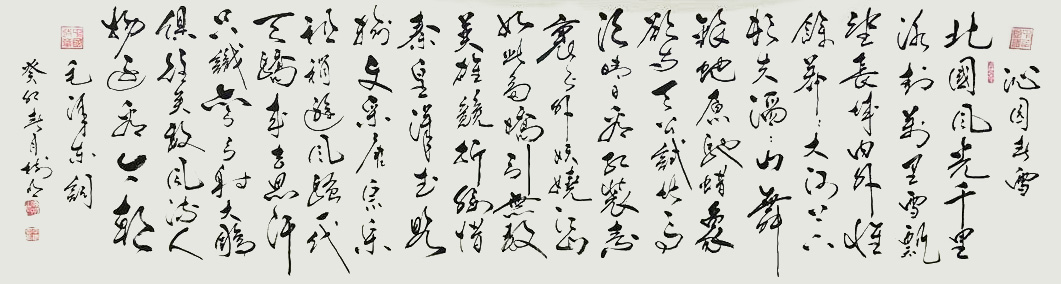 沁园春雪
北國风光千里
冰封萬里雪飄
望長城内外惟
餘莽莽大河上下
頓失滔滔山舞
銀蛇原馳蜡象
欲与天公試比高
須晴日看红装素
裹分外妖嬈江山
如此多嬌引無数
英雄競折腰惜
秦皇漢武略
輸文采唐宗宋
祖稍遜风騷一代
天驕成吉思汗
只識弯弓射大鵰
俱往矣数风流人
物还看今朝
毛澤东詞
癸卯春月